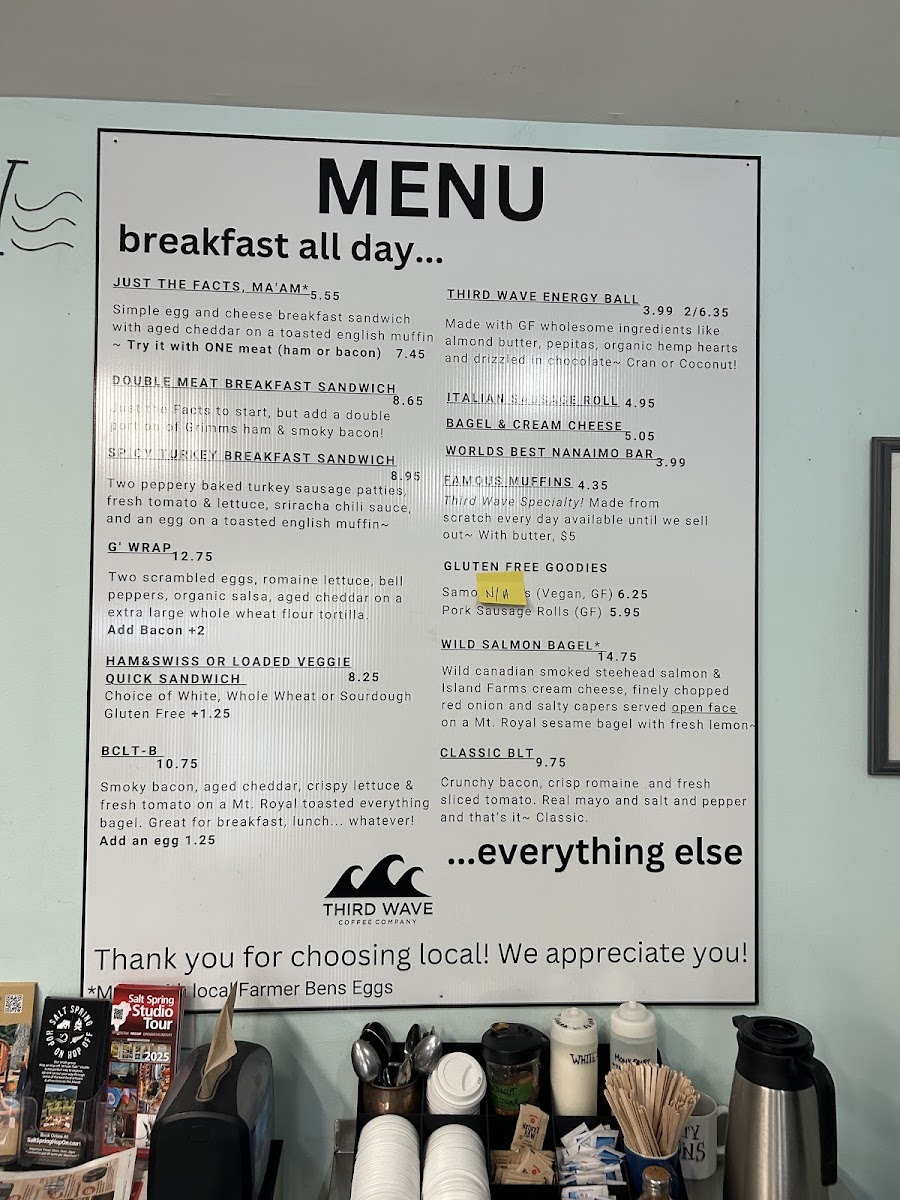 MENU
breakfast all day...
JUST THE FACTS, MA'AM* 5.55
Simple egg and cheese breakfast sandwich
with aged cheddar on a toasted english muffin
~ Try it with ONE meat (ham or bacon) 7.45
DOUBLE MEAT BREAKFAST SANDWICH
8.65
Just the Facts to start, but add a double
portion of Grimms ham & smoky bacon!
SPICY TURKEY BREAKFAST SANDWICH
8.95
Two peppery baked turkey sausage patties,
fresh tomato & lettuce, sriracha chili sauce,
and an egg on a toasted english muffin~
G' WRAP 12.75
Two scrambled eggs, romaine lettuce, bell
peppers, organic salsa, aged cheddar on a
extra large whole wheat flour tortilla.
Add Bacon +2
HAM&SWISS OR LOADED VEGGIE
QUICK SANDWICH 8.25
Choice of White, Whole Wheat or Sourdough
Gluten Free +1.25
BCLT-B
10.75
Smoky bacon, aged cheddar, crispy lettuce &
fresh tomato on a Mt. Royal toasted everything
bagel. Great for breakfast, lunch... whatever!
Add an egg 1.25
THIRD WAVE ENERGY BALL
3.99 2/6.35
Made with GF wholesome ingredients like
almond butter, pepitas, organic hemp hearts
and drizzled in chocolate~ Cran or Coconut!
ITALIAN SAUSAGE ROLL 4.95
BAGEL & CREAM CHEESE
5.05
WORLDS BEST NANAIMO BAR 3.99
FAMOUS MUFFINS 4.35
Third Wave Specialty! Made from
scratch every day available until we sell
out~ With butter, $5
GLUTEN FREE GOODIES
Samo N/A s (Vegan, GF) 6.25
Pork Sausage Rolls (GF) 5.95
WILD SALMON BAGEL*
14.75
Wild canadian smoked steehead salmon &
Island Farms cream cheese, finely chopped
red onion and salty capers served open face
on a Mt. Royal sesame bagel with fresh lemon~
CLASSIC BLT 9.75
Crunchy bacon, crisp romaine and fresh
sliced tomato. Real mayo and salt and pepper
and that's it~ Classic.
...everything else
THIRD WAVE
COFFEE COMPANY
Thank you for choosing local! We appreciate you!
local Farmer Bens Eggs
SALT SPRING
HOP ON HOP OFF
SaltSpringHopOn.com
Salt Spring
Studio
Tour
2025
WHITE